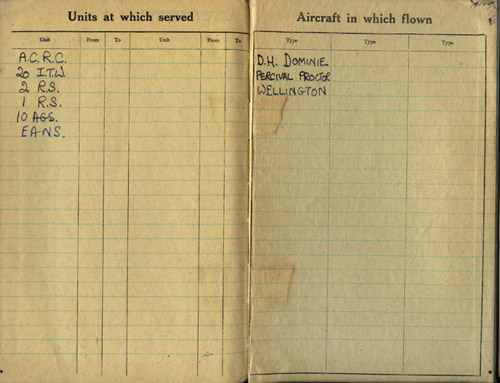 Units at which served
Unit From To Unit From To
A.C.R.C.
20 I.T.W.
2 R.S.
1 R.S.
10 AGS.
EANS.
Aircraft in which flown
Type Type Type
D.H. DOMINIE
PERCIVAL PROCTOR
WELLINGTON